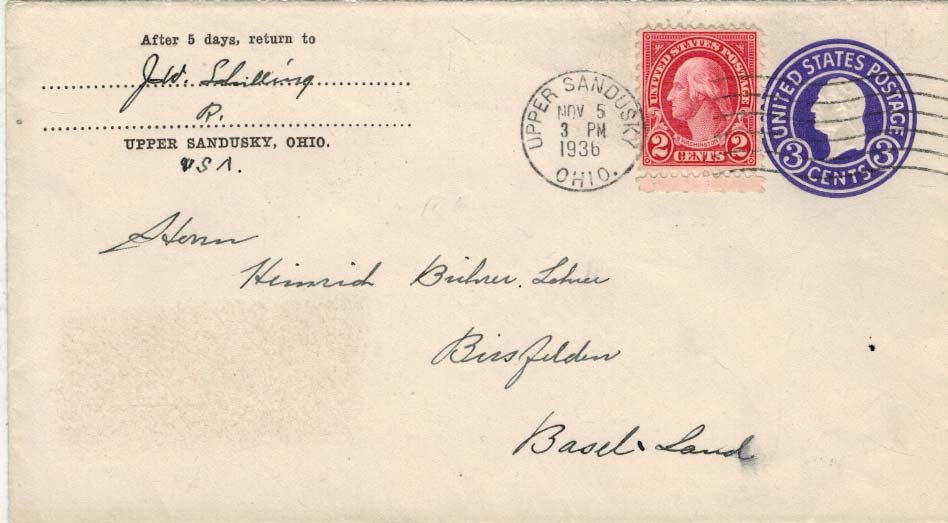 After 5 days, return to
J.W. Schilling
R.
UPPER SANDUSKY, OHIO.
USA.
UPPER SANDUSKY
NOV 5
3 PM
1936
OHIO.
UNITED STATES POSTAGE
WASHINGTON
2 CENTS 2
UNITED STATES POSTAGE
3 CENTS 3
Herrn
Heinrich Bührer. Lehrer
Birsfelden
Basel-Land